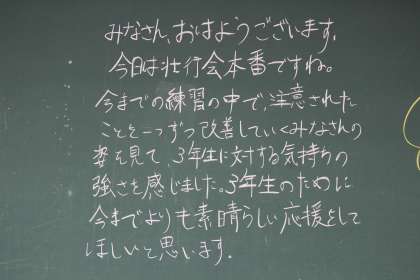 みなさん、おはようございます。
今日は壮行会本番ですね。
今までの練習の中で、注意された
ことを一つずつ改善していくみなさんの
姿を見て、3年生に対する気持ちの
強さを感じました。3年生のために
今までよりも素晴らしい応援をして
ほしいと思います。